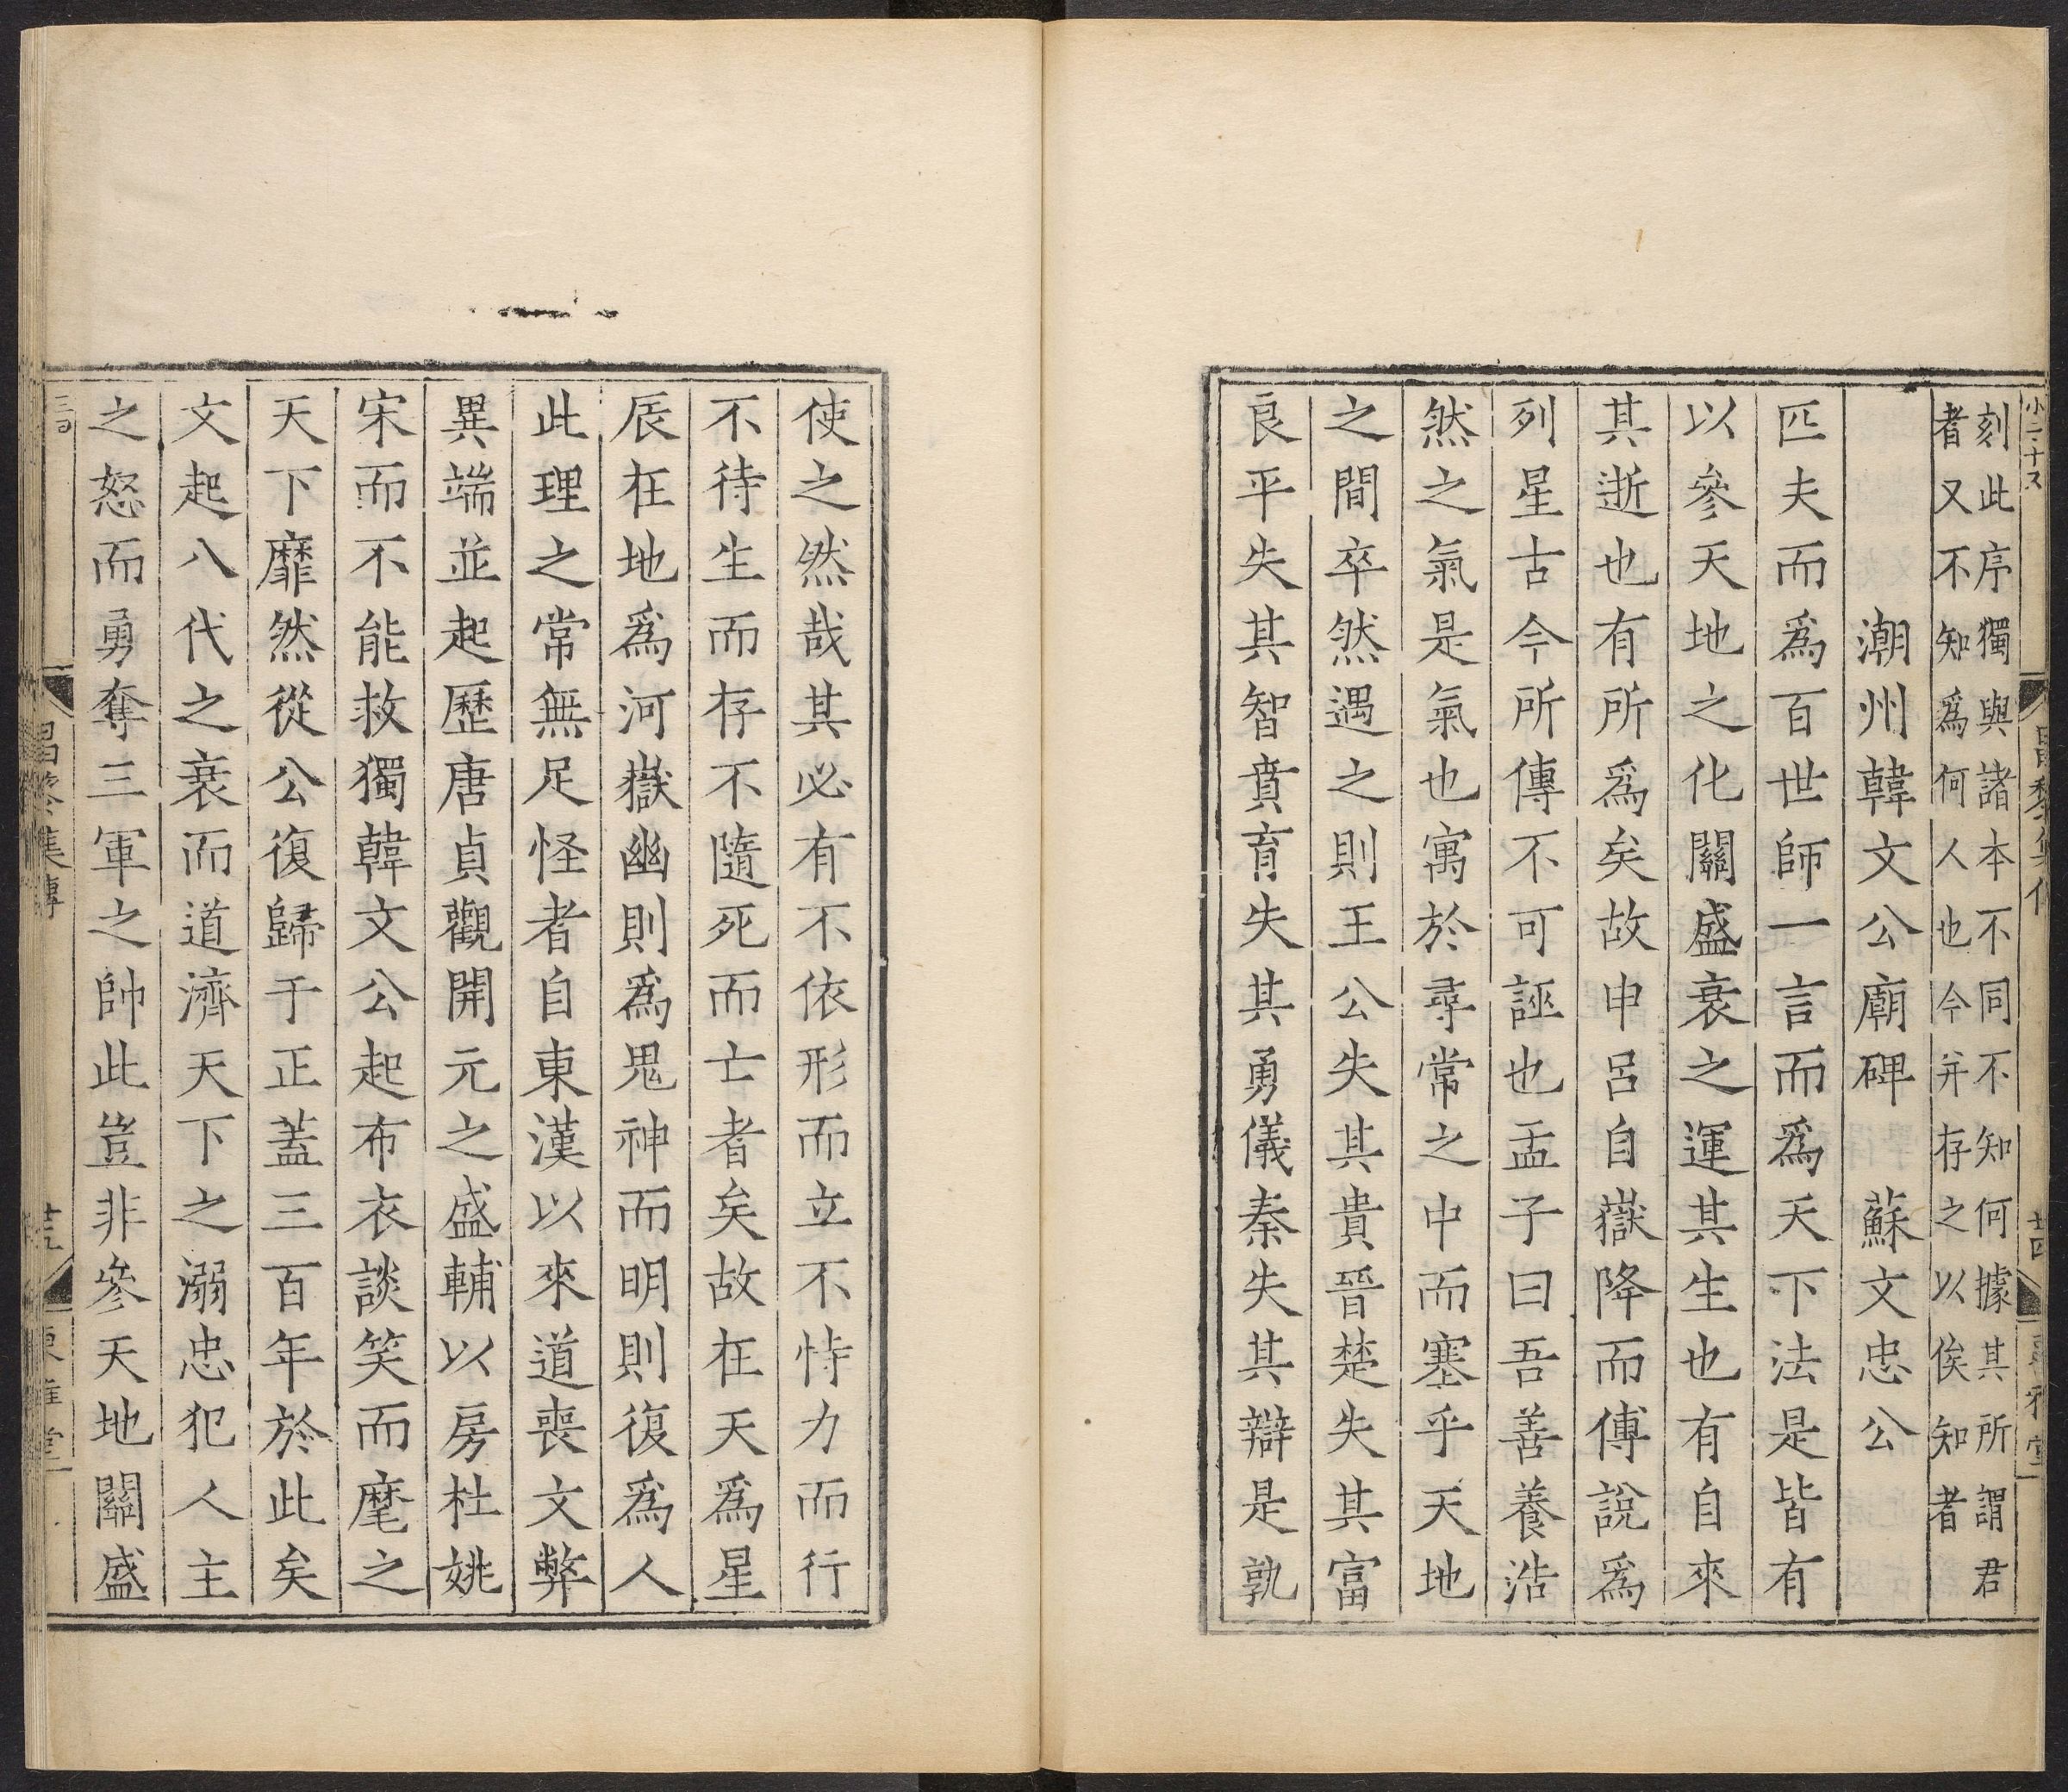 刻此序獨與諸本不同不知何據其所謂君
者又不知爲何人也今并存之以俟知者
潮州韓文公廟碑 蘇文忠公
匹夫而爲百世師一言而爲天下法是皆有
以參天地之化關盛衰之運其生也有自來
其逝也有所爲矣故申呂自嶽降而傅說爲
列星古今所傳不可誣也孟子曰吾善養浩
然之氣是氣也寓於尋常之中而塞乎天地
之間卒然遇之則王公失其貴晉楚失其富
良平失其智賁育失其勇儀秦失其辯是孰
使之然哉其必有不依形而立不恃力而行
不待生而存不隨死而亡者矣故在天爲星
辰在地爲河嶽幽則爲鬼神而明則復爲人
此理之常無足怪者自東漢以來道喪文弊
異端並起歷唐貞觀開元之盛輔以房杜姚
宋而不能救獨韓文公起布衣談笑而麾之
天下靡然從公復歸于正蓋三百年於此矣
文起八代之衰而道濟天下之溺忠犯人主
之怒而勇奪三軍之帥此豈非參天地關盛
昌黎集傳